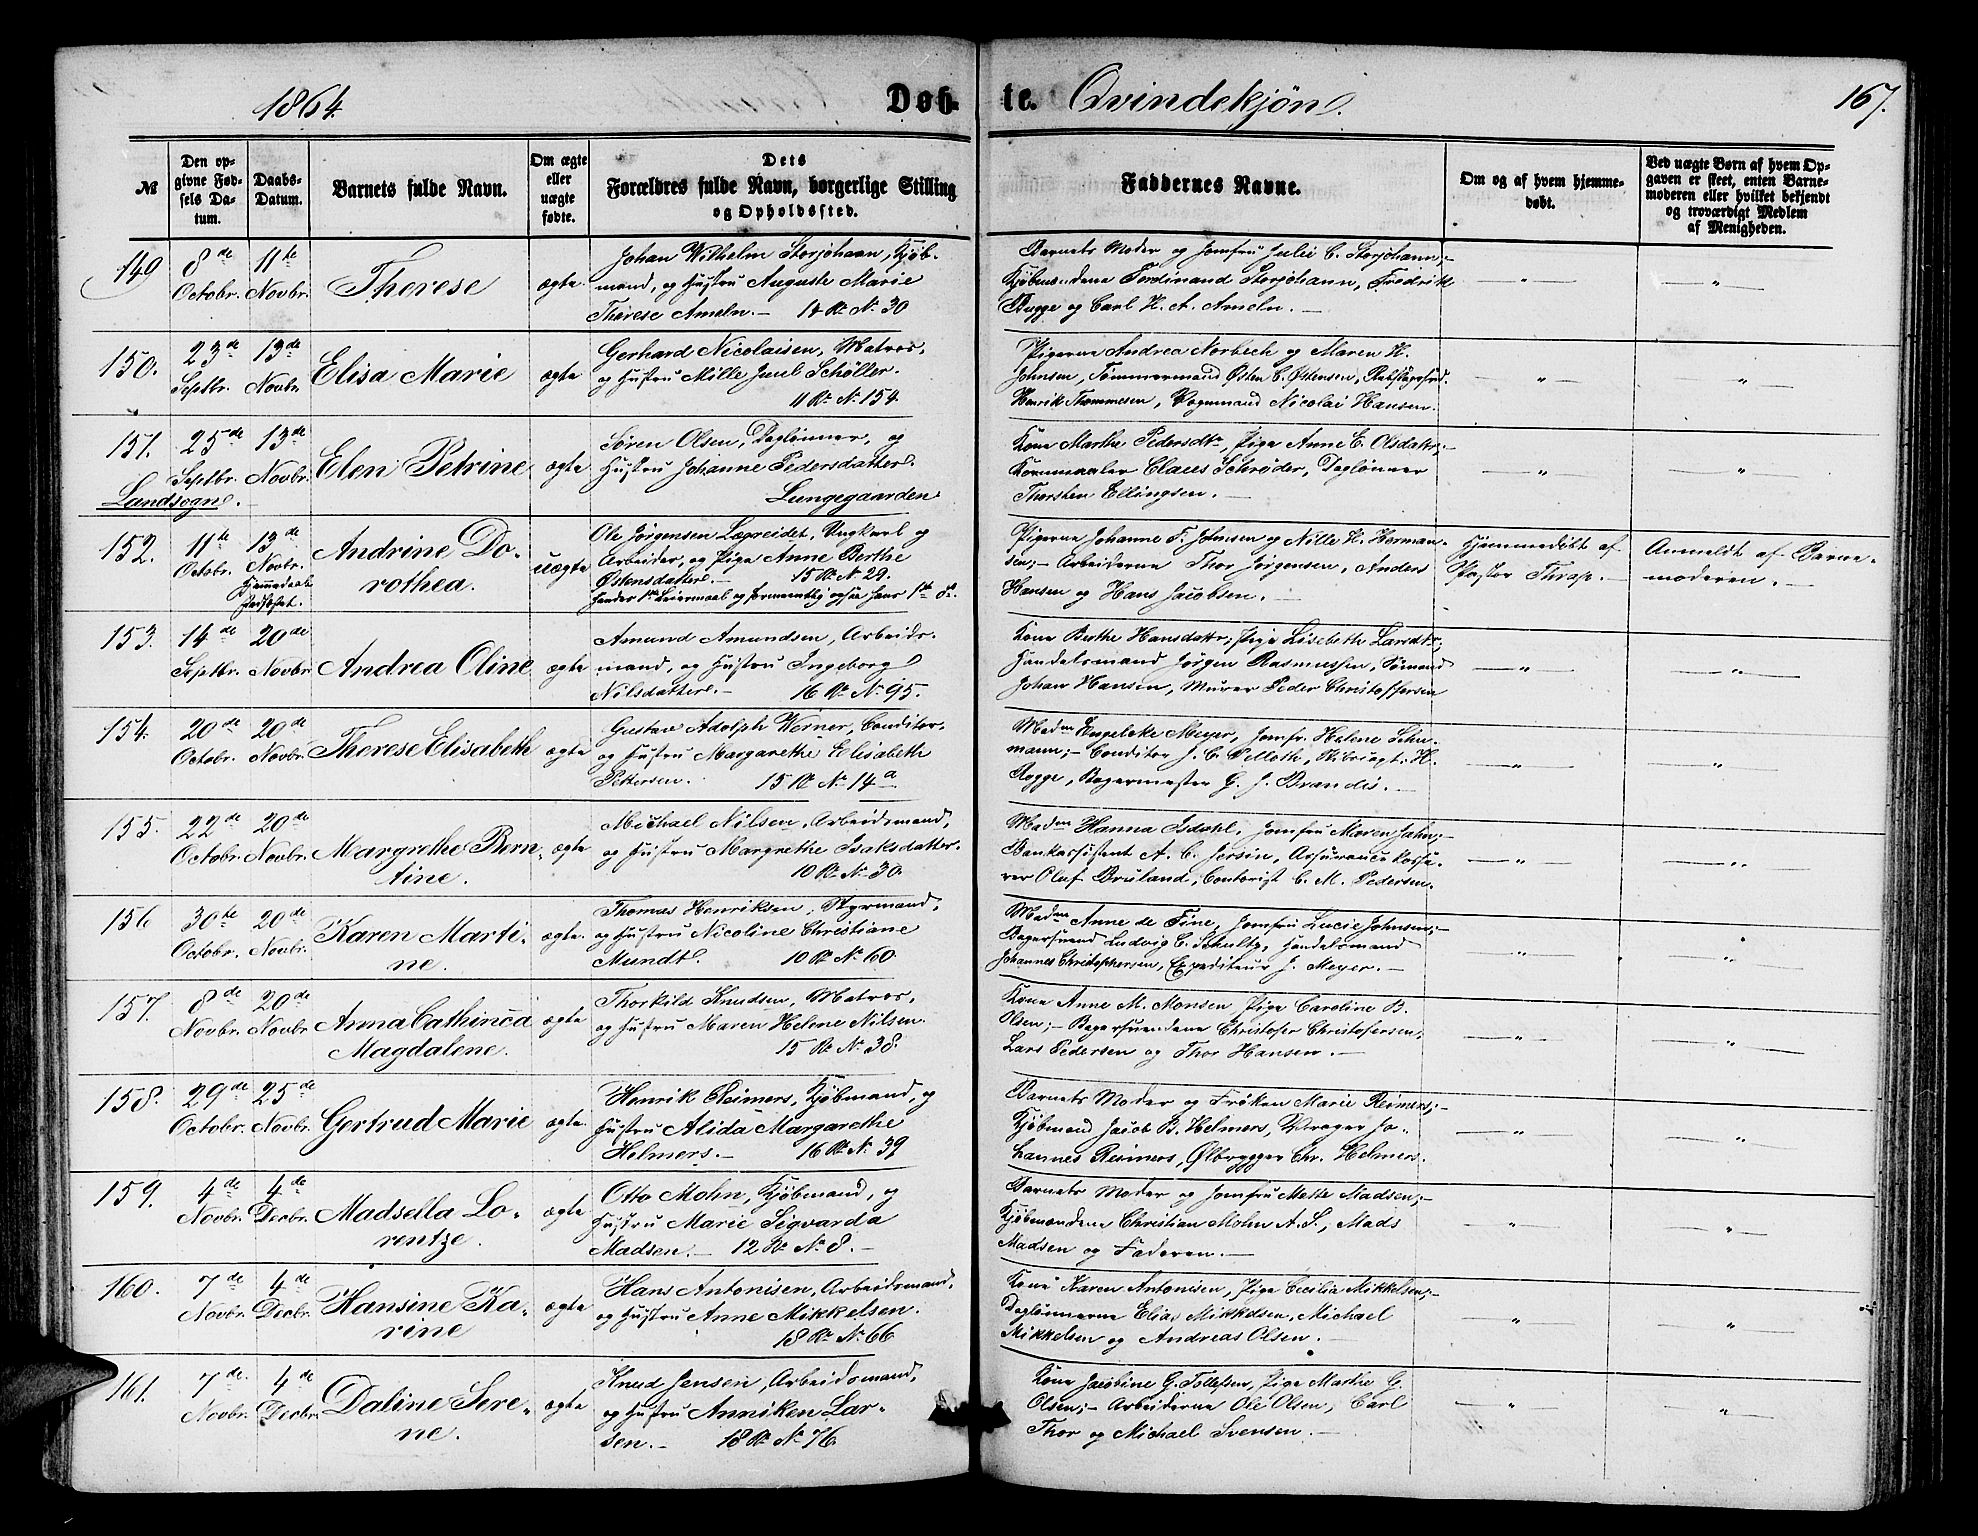 1864.
Døb-
te.
Qvindekjøn.
167.
№
Den op-
givne Fød-
sels Da-
tum.
Daabs-
Datum.
Barnets fulde Navn.
Om ægte
eller
uægte
fødte.
Dets
Forældres fulde Navn, borgerlige Stilling
og Opholdssted.
Faddernes Navne.
Om og af hvem hjemme-
døbt.
Ved uægte Børn af hvem Op-
gaven er skeet, enten Barne-
moderen eller hvilket bekjendt
og troværdigt Medlem
af Menigheden.
149
8de
Octobr.
11te
Novbr.
Therese
ægte.
Johan Wilhelm Storjohann, Kjøb-
mand, og Hustru Auguste Marie
Therese Ameln.— 14 R. N. 30
Barnets Moder og Jomfru Julie C. Storjohann;—
Kjøbmændene Ferdinand Storjohann, Fredrik
Bugge og Carl H. A. Ameln.—
— „ —
— „ —
150.
23de
Septbr.
13de
Novbr.
Elisa Marie
ægte
Gerhard Nicolaisen, Matros,
og Hustru Mille Juul Schøller.
11 R. N. 154.
Pigerne Andrea Norbech og Maren H.
Johnsen, Tømmermand Østen C. Østensen,
Henrik Thommesen, Vognmand Nicolai Hansen.
— „ —
— „ —
151.
25de
Septbr.
Landsogne.
13de
Novbr.
Elen Petrine
ægte
Søren Olsen, Daglønner, og
Hustru Johanne Pedersdatter.
Lungegaarden
Kone Marthe Pedersdtr, Pige Anne E. Olsdattr;—
Kornmaaler Claus Schrøder, Daglønner
Thorsten Ellingsen.—
— „ —
— „ —
152.
11te
Octobr.
13de
Novbr.
Hjemmedaab
stadfæstet.
Andrine Do-
rothea.
uægte
Ole Jørgensen Lægreidet, Ungkarl og
Arbeider, og Pige Anne Berthe
Østensdatter.— 15 R. N. 29.
hendes 1ste Leiermaal og formeentlig ogsaa hans 1ste do.
Pigerne Johanne F. Johnsen og Nille H. Herman-
sen;— Arbeiderne Thor Jørgensen, Anders
Hansen og Hans Jacobsen.—
Hjemmedøbt af
Pastor Thrap.—
Anmeldt af Barne-
moderen.—
153.
14de
Septbr.
20de
Novbr.
Andrea Oline
ægte
Amund Amundsen, Arbeids-
mand, og Hustru Ingeborg
Nilsdatter.— 16 R. N. 95.
Kone Berthe Hansdattr, Pige Lisebeth Larsdtr;
Handelsmand Jørgen Rasmussen, Sømand
Johan Hansen, Murer Peder Christoffersen
— „ —
— „ —
154.
20de
Octobr.
20de
Novbr.
Therese Elisabeth
ægte
Gustav Adolph Werner, Conditor,
og Hustru Margarethe Elisabeth
Pettersen. 15 R. N. 14a
Madm Engelche Meyer, Jomfr. Helene Schu-
mann;— Conditor J. C. Pelloth, H.
Rogge, Bagermester G. J. Brandis.—
— „ —
— „ —
155.
22de
Octobr.
20de
Novbr.
Margrethe Bern-
tine.
ægte
Michael Nilsen, Arbeidsmand,
og Hustru Margrethe Isaksdatter.
10 R. N. 30.
Madm Hanna Isdahl, Jomfru Maren Jahn;—
Bankassistent A. C. Jersin, Assurance Kasse-
rer Oluf Bruland, Contorist C. M. Pedersen.
— „ —
— „ —
156
30te
Octobr.
20de
Novbr.
Karen Marti-
ne.
ægte.
Thomas Henriksen, Styrmand,
og Hustru Nicoline Christiane
Mundt. 10 R. N. 60
Madm Anne de Fine, Jomfru Lucie Johnsen;—
Bagersvend Ludvig C. Schultz, Handelsmand
Johannes Christophersen, Expediteur J. Meyer.—
— „ —
— „ —
157.
8de
Novbr.
20de
Novbr.
Anna Cathinca
Magdalene.
ægte
Thorkild Knudsen, Matros,
og Hustru Maren Helene Nilsen.
15 R. N. 38.
Kone Anne M. Monsen, Pige Caroline B.
Olsen;— Bagersvendene Christofer Christofersen,
Lars Pedersen og Thor Hansen.—
— „ —
— „ —
158.
29de
Octobr.
25de
Novbr.
Gertrud Marie
ægte.
Henrik Reimers, Kjøbmand, og
Hustru Alida Margarethe
Helmers.— 16 R. N. 39
Barnets Moder og Frøken Marie Reimers;—
Kjøbmand Jacob B. Helmers, Vrager Jo-
hannes Reimers, Ølbrygger Chr. Helmers.
— „ —
— „ —
159.
4de
Novbr.
4de
Decbr.
Madsella Lo-
rentze.
ægte
Otto Mohn, Kjøbmand, og
Hustru Marie Sigvarda
Madsen.— 12 R. N. 8.—
Barnets Moder og Jomfru Mette Madsen;—
Kjøbmændene Christian Mohn A. S., Mads
Madsen og Faderen.—
— „ —
— „ —
160.
7de
Novbr.
4de
Decbr.
Hansine Ka-
rine
ægte
Hans Antonisen, Arbeidsmand,
og Hustru Anne Mikkelsen.
18 R. N. 66
Kone Karen Antonisen, Pige Cecilia Mikkelsen;—
Daglønnerne Elias Mikkelsen, Michael
Mikkelsen og Andreas Olsen.—
— „ —
— „ —
161.
7de
Novbr.
4de
Decbr.
Daline Sere-
ne.
ægte
Knud Jensen, Arbeidsmand,
og Hustru Anniken Lar-
sen.— 18 R. N. 76.
Kone Jacobine G. Tollefsen, Pige Marthe G.
Olsen;— Arbeiderne Ole Olsen, Carl
Thor og Michael Svensen.—
— „ —
— „ —